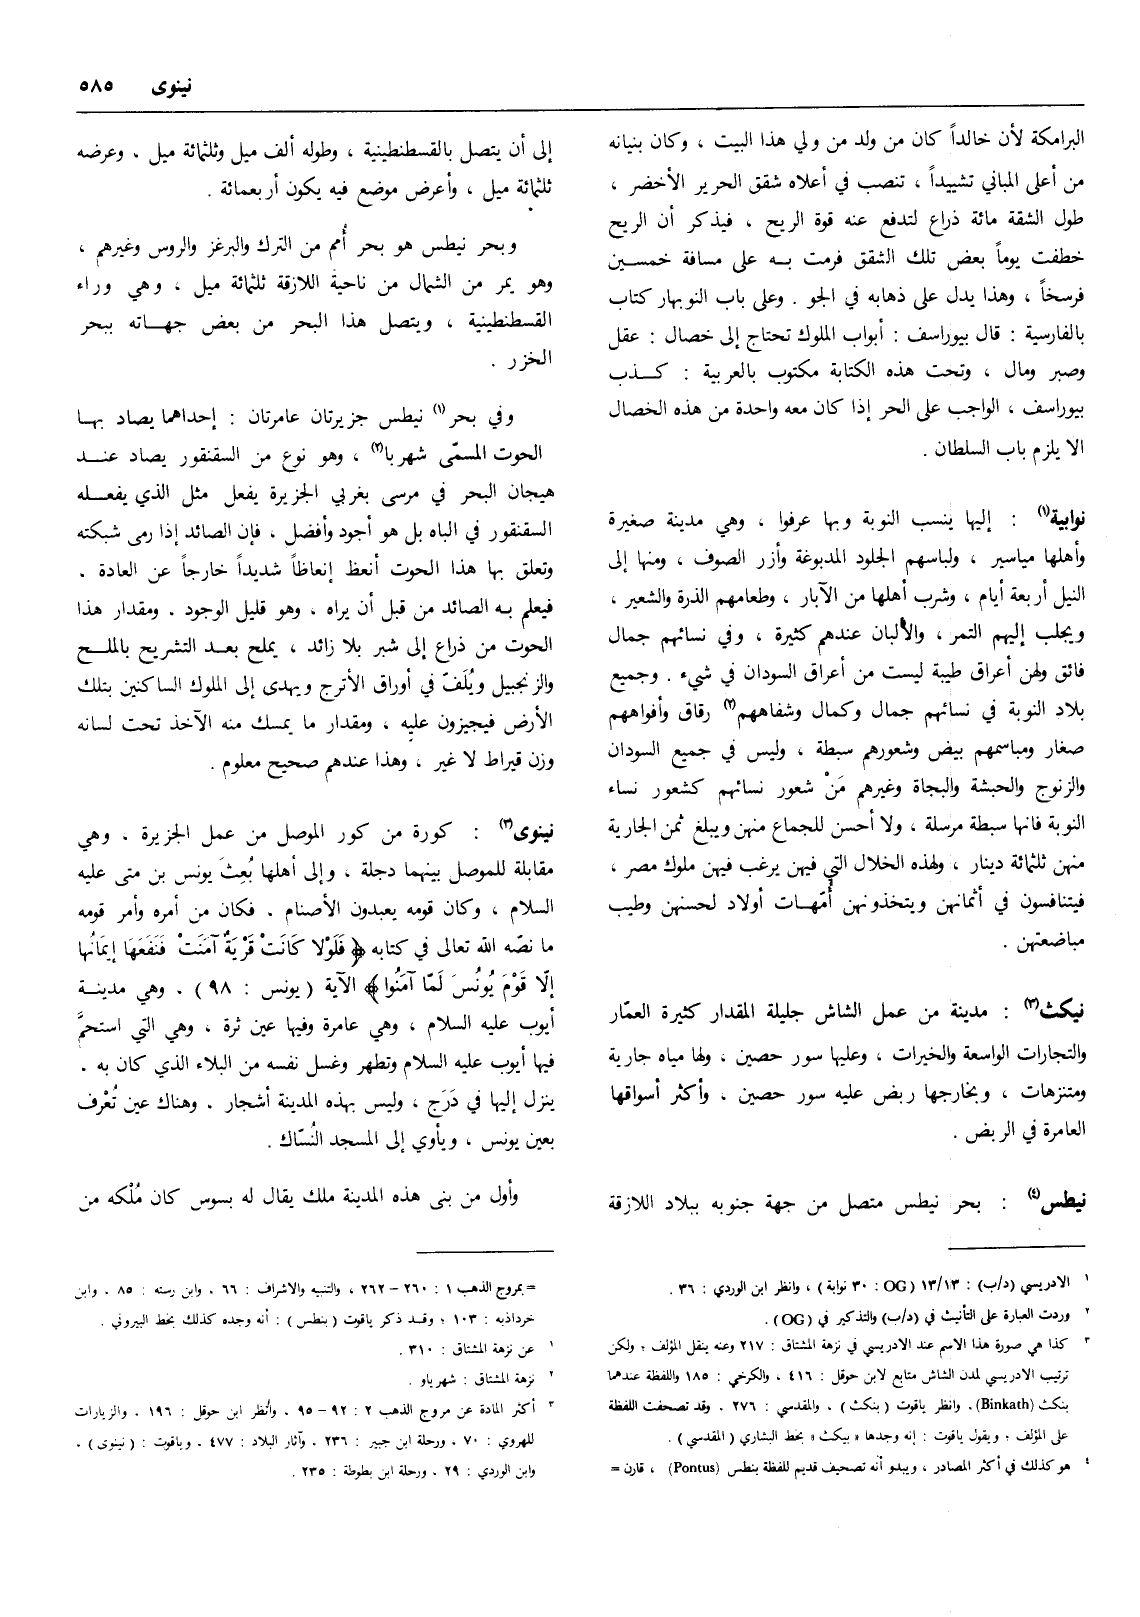 نينوى ٥٨٥
البرامكة لأن خالداً كان من ولد من ولي هذا البيت ، وكان بنيانه
من أعلى المباني تشييداً ، تنصب في أعلاه شقق الحرير الأخضر ،
طول الشقة مائة ذراع لتدفع عنه قوة الريح ، فيذكر أن الريح
خطفت يوماً بعض تلك الشقق فرمت به على مسافة خمسين
فرسخاً ، وهذا يدل على ذهابه في الجو . وعلى باب النوبهار كتاب
بالفارسية : قال بيوراسف : أبواب الملوك تحتاج إلى خصال : عقل
وصبر ومال ، وتحت هذه الكتابة مكتوب بالعربية : كذب
بيوراسف ، الواجب على الحر إذا كان معه واحدة من هذه الخصال
الا يلزم باب السلطان .
نوابية(١) : إليها ينسب النوبة وبها عرفوا ، وهي مدينة صغيرة
وأهلها مياسير ، ولباسهم الجلود المدبوغة وأزر الصوف ، ومنها إلى
النيل أربعة أيام ، وشرب أهلها من الآبار ، وطعامهم الذرة والشعير ،
ويجلب إليهم التمر ، والألبان عندهم كثيرة ، وفي نسائهم جمال
فائق ولهن أعراق طيبة ليست من أعراق السودان في شيء . وجميع
بلاد النوبة في نسائهم جمال وكمال وشفاههم(٢) رقاق وأفواههم
صغار ومباسمهم بيض وشعورهم سبطة ، وليس في جميع السودان
والزنوج والحبشة والبجاة وغيرهم مَنْ شعور نسائهم كشعور نساء
النوبة فانها سبطة مرسلة ، ولا أحسن للجماع منهن ويبلغ ثمن الجارية
منهن ثلثمائة دينار ، ولهذه الخلال التي فيهن يرغب فيهن ملوك مصر ،
فيتنافسون في أثمانهن ويتخذونهن أُمّهات أولاد لحسنهن وطيب
مباضعتهن .
نيكث(٣) : مدينة من عمل الشاش جليلة المقدار كثيرة العمّار
والتجارات الواسعة والخيرات ، وعليها سور حصين ، ولها مياه جارية
ومتنزهات ، وبخارجها ربض عليه سور حصين ، وأكثر أسواقها
العامرة في الربض .
نيطس(٤) : بحر نيطس متصل من جهة جنوبه ببلاد اللازقة
١ الادريسي (د/ب) : ١٣/١٣ (OG : ٣٠ نوابة) ، وانظر ابن الوردي : ٣٦ .
٢ وردت العبارة على التأنيث في (د/ب) والتذكير في (OG) .
٣ كذا هي صورة هذا الاسم عند الادريسي في نزهة المشتاق : ٢١٧ وعنه ينقل المؤلف ؛ ولكن
ترتيب الادريسي لمدن الشاش متابع لابن حوقل : ٤١٦ ، والكرخي : ١٨٥ واللفظة عندهما
بنكث (Binkath). وانظر ياقوت (بنكث) ، والمقدسي : ٢٧٦ . وقد تصحفت اللفظة
على المؤلف ؛ ويقول ياقوت : إنه وجدها « بيكث » بخط البشاري (المقدسي) .
٤ هو كذلك في أكثر المصادر ، ويبدو أنه تصحيف قديم للفظة بنطس (Pontus) ، قارن =
إلى أن يتصل بالقسطنطينية ، وطوله ألف ميل وثلثمائة ميل . وعرضه
ثلثمائة ميل ، وأعرض موضع فيه يكون أربعمائة .
وبحر نيطس هو بحر أُمم من الترك والبرغز والروس وغيرهم ،
وهو يمر من الشمال من ناحية اللازقة ثلثمائة ميل ، وهي وراء
القسطنطينية ، ويتصل هذا البحر من بعض جهاته ببحر
الخزر .
وفي بحر(١) نيطس جزيرتان عامرتان : إحداهما يصاد بها
الحوت المسمّى شهريا(٢) ، وهو نوع من السقنقور يصاد عند
هيجان البحر في مرسى بغربي الجزيرة يفعل مثل الذي يفعله
السقنقور في الباه بل هو أجود وأفضل ، فإن الصائد إذا رمى شبكته
وتعلق بها هذا الحوت أنعظ إنعاظاً شديداً خارجاً عن العادة .
فيعلم به الصائد من قبل أن يراه ، وهو قليل الوجود . ومقدار هذا
الحوت من ذراع إلى شبر بلا زائد ، يملح بعد التشريح بالملح
والزنجبيل ويُلَفّ في أوراق الأترج ويهدى إلى الملوك الساكنين بتلك
الأرض فيجيزون عليه ، ومقدار ما يمسك منه الآخذ تحت لسانه
وزن قيراط لا غير ، وهذا عندهم صحيح معلوم .
نينوى(٣) : كورة من كور الموصل من عمل الجزيرة . وهي
مقابلة للموصل بينهما دجلة ، وإلى أهلها بُعِثَ يونس بن متى عليه
السلام ، وكان قومه يعبدون الأصنام . فكان من أمره وأمر قومه
ما نصّه الله تعالى في كتابه ﴿ فَلَوْلا كَانَتْ قَرْيَةٌ آمَنَتْ فَنَفَعَهَا إيمَانُها
إلّا قَوْمَ يُونُسَ لَمّا آمَنُوا ﴾ الآية (يونس : ٩٨) . وهي مدينة
أيوب عليه السلام ، وهي عامرة وفيها عين ثرة ، وهي التي استحمَّ
فيها أيوب عليه السلام وتطهر وغسل نفسه من البلاء الذي كان به .
ينزل إليها في دَرَج ، وليس بهذه المدينة أشجار . وهناك عين تُعْرف
بعين يونس ، ويأوي إلى المسجد النُسّاك .
وأول من بنى هذه المدينة ملك يقال له بسوس كان مُلْكه من
= بمروج الذهب ١ : ٢٦٠ – ٢٦٢ ، والتنبيه والاشراف : ٦٦ ، وابن رسته : ٨٥ . وابن
خرداذبه : ١٠٣ ؛ وقد ذكر ياقوت (بنطس) : أنه وجده كذلك بخط البيروني .
١ عن نزهة المشتاق : ٣١٠ .
٢ نزهة المشتاق : شهرياو .
٣ أكثر المادة عن مروج الذهب ٢ : ٩٢ – ٩٥ . وأنظر ابن حوقل : ١٩٦ . والزيارات
للهروي : ٧٠ . ورحلة ابن جبير : ٢٣٦ . وآثار البلاد : ٤٧٧ . وياقوت : (نينوى) .
وابن الوردي : ٢٩ . ورحلة ابن بطوطة : ٢٣٥ .